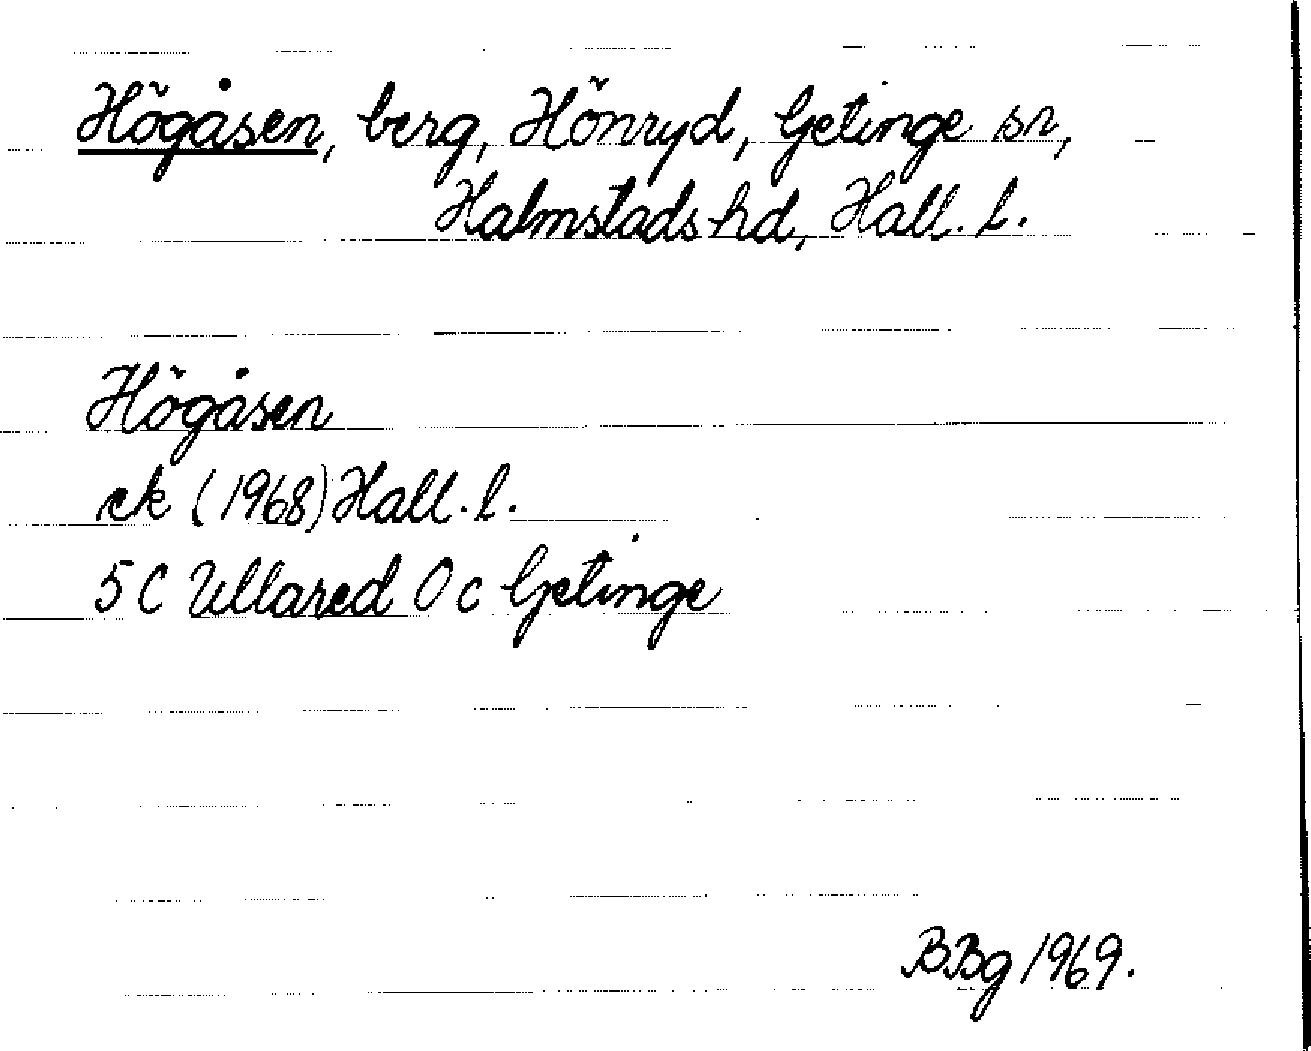 Högåsen, berg, Hönryd, Getinge sn,
Halmstads hd, Hall. l.
Högåsen
ek (1968) Hall. l.
5 C Ullared 0 c Getinge
BBg 1969.